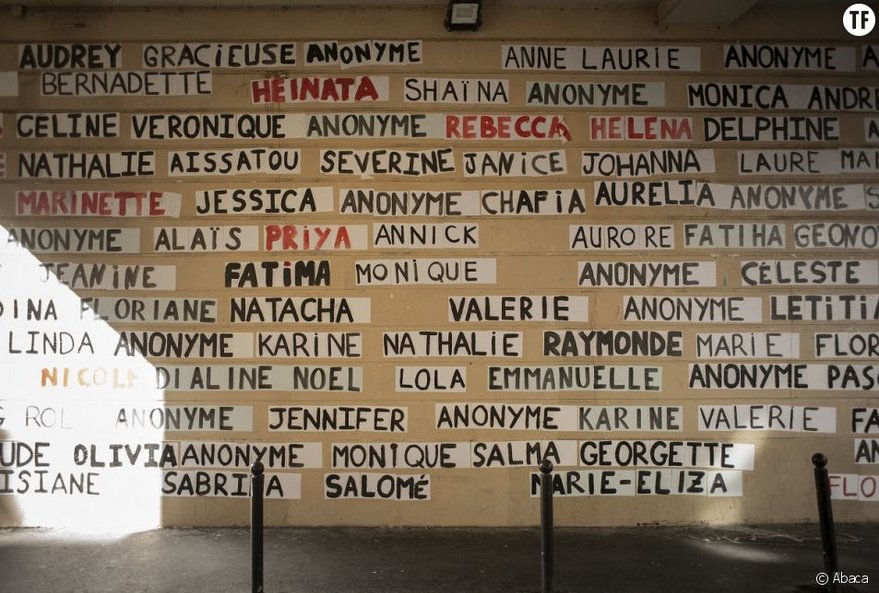 TF
AUDREY GRACIEUSE ANONYME ANNE LAURIE ANONYME
BERNADETTE HEINATA SHAÏNA ANONYME MONICA ANDR
CÉLINE VERONIQUE ANONYME REBECCA HELENA DELPHINE
NATHALIE AISSATOU SEVERINE JANICE JOHANNA LAURE MA
MARINETTE JESSICA ANONYME CHAFIA AURELIA ANONYME S
ANONYME ALAÏS PRIYA ANNICK AURORE FATIHA GEONO
JEANINE FATIMA MONIQUE ANONYME CÉLESTE
DINA FLORIANE NATACHA VALERIE ANONYME LETITI
LINDA ANONYME KARINE NATHALIE RAYMONDE MARIE FLOR
NICOLE DIALINE NOEL LOLA EMMANUELLE ANONYME PASC
ROL ANONYME JENNIFER ANONYME KARINE VALERIE FA
UDE OLIVIA ANONYME MONIQUE SALMA GEORGETTE AN
ISIANE SABRINA SALOMÉ MARIE-ELIZA FLO
© Abaca